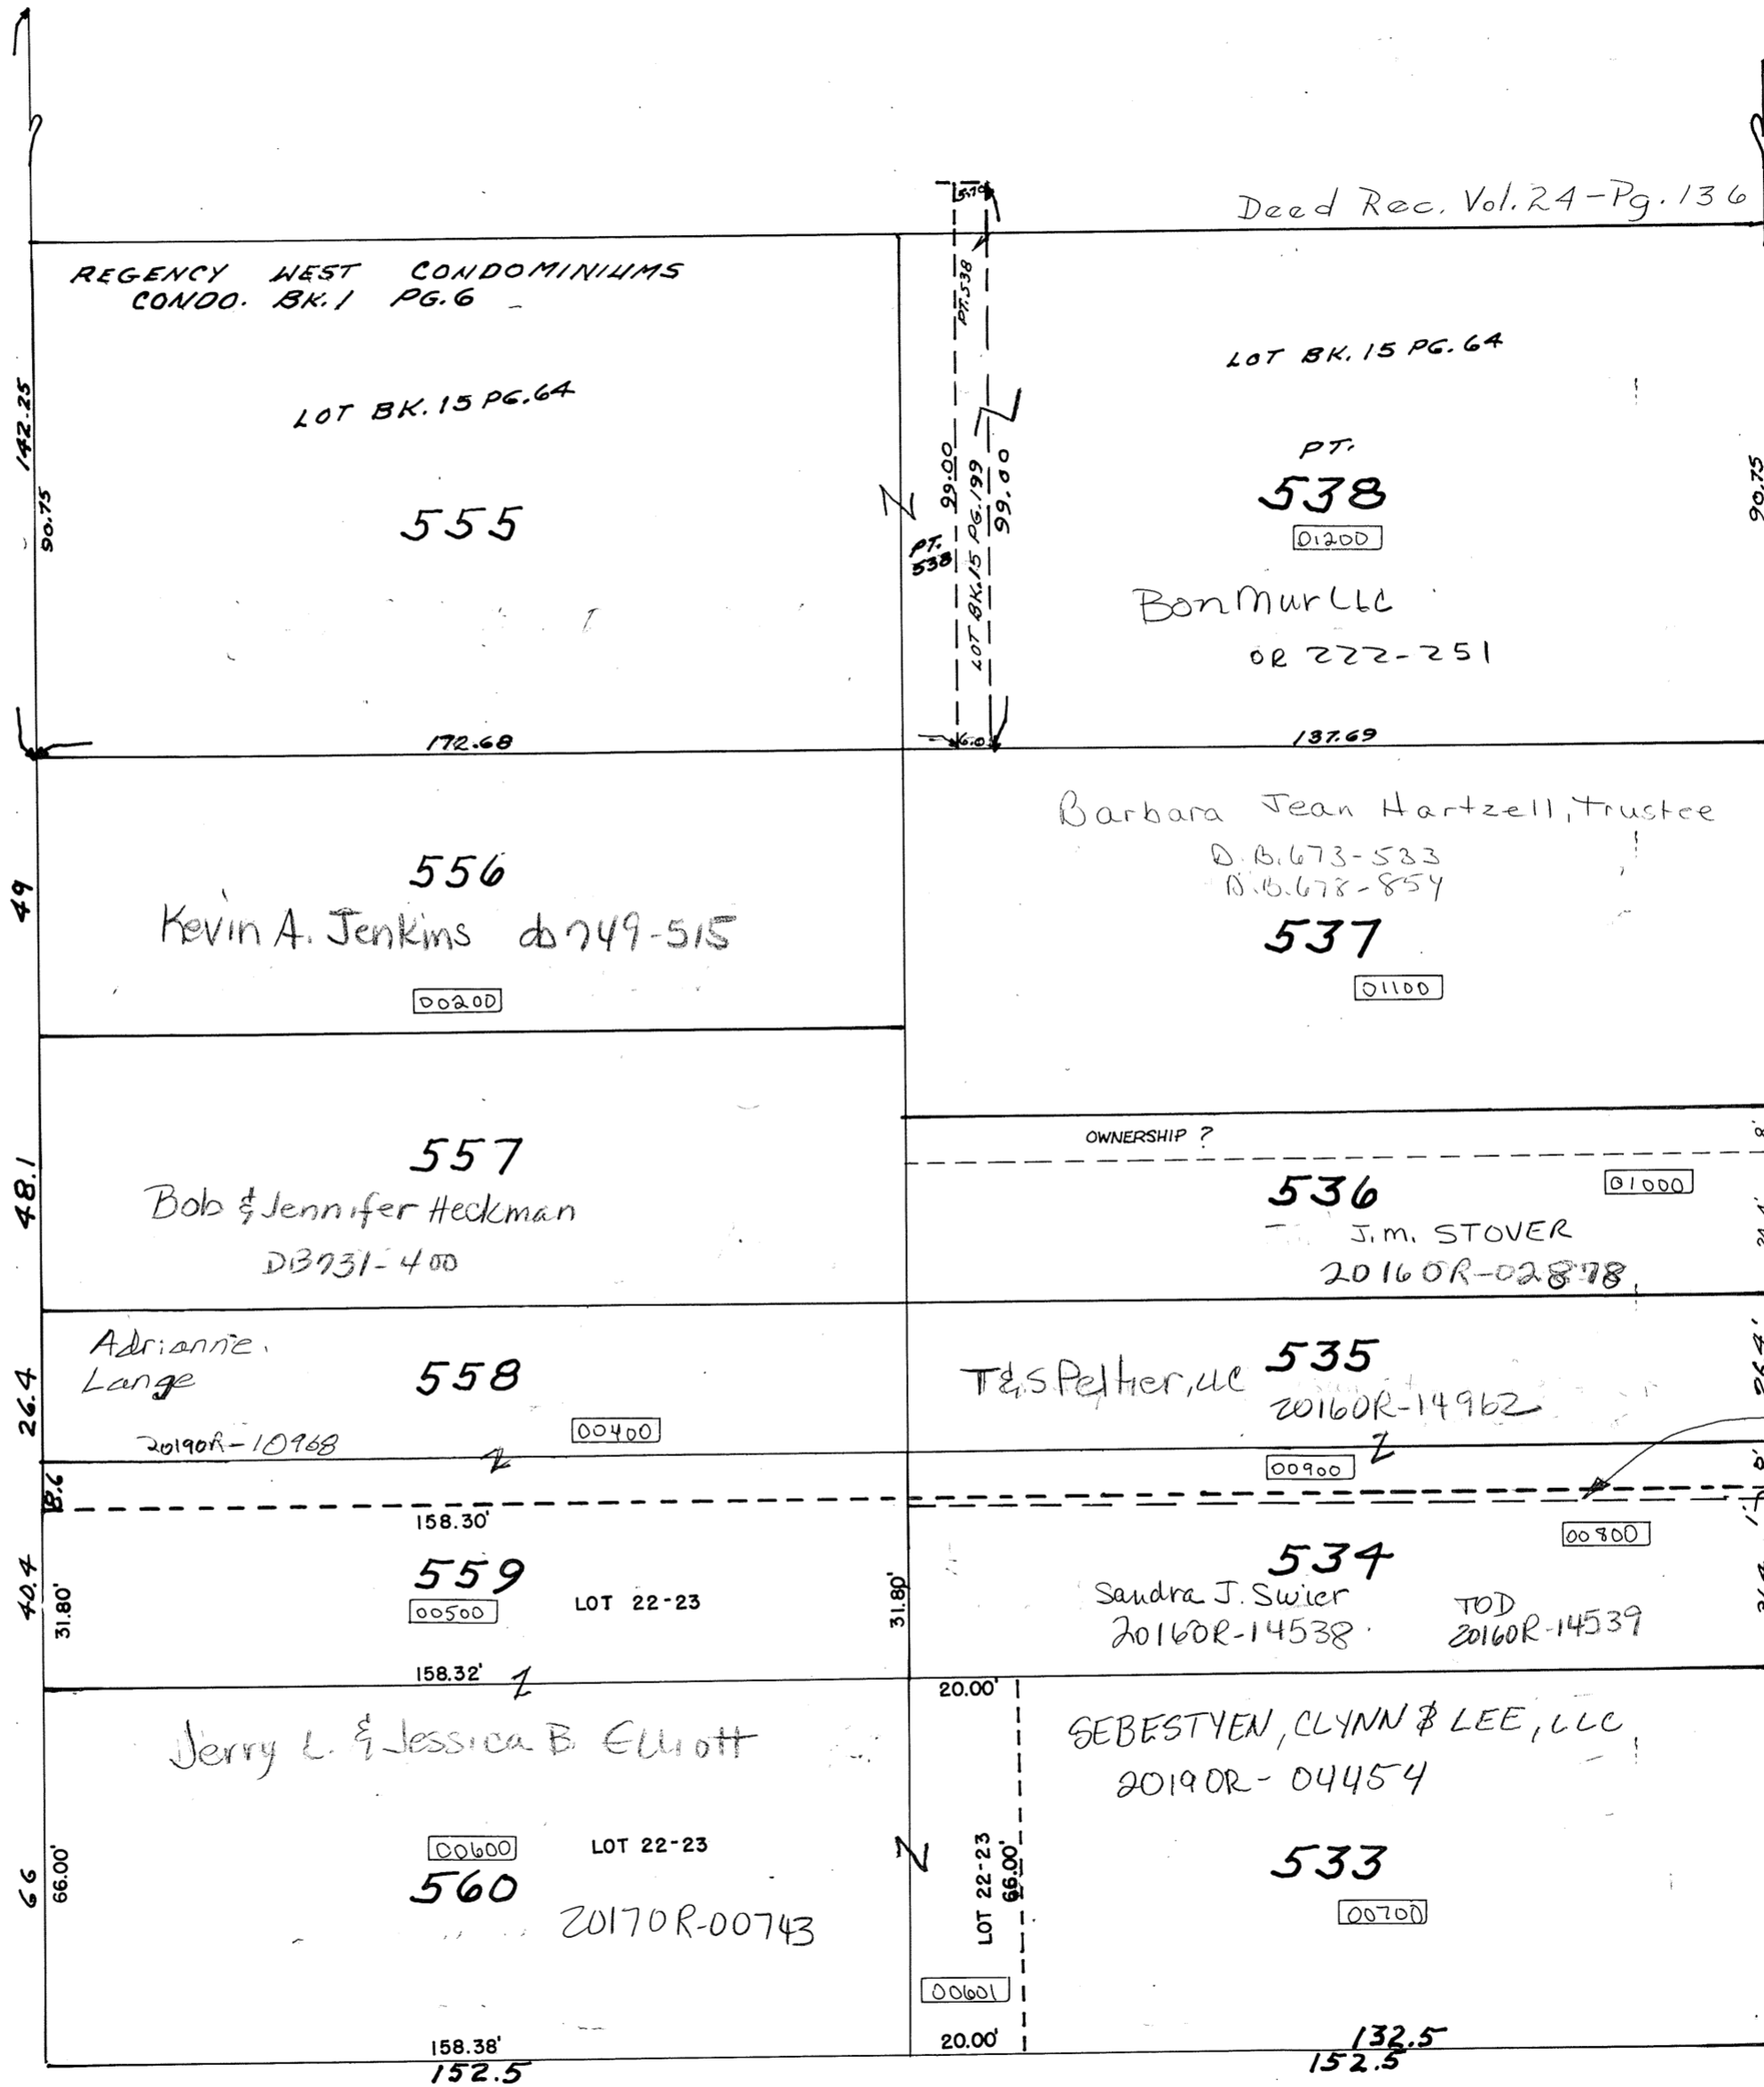 Deed Rec. Vol. 24-Pg. 136
REGENCY WEST CONDOMINIUMS
CONDO. BK. 1 PG. 6
LOT BK. 15 PG. 64
555
142.25
90.75
172.68
5.70
PT. 538
99.00
LOT BK. 15 PG. 199
99.00
PT.
538
6.0
LOT BK. 15 PG. 64
PT.
538
01200
BonMur LLC
OR 222-251
90.75
137.69
49
556
Kevin A. Jenkins db 749-515
00200
Barbara Jean Hartzell, Trustee
D.B. 673-533
D.B. 678-854
537
01100
48.1
557
Bob & Jennifer Heckman
DB731-400
OWNERSHIP ?
8'
536
01000
J.M. STOVER
2016OR-02878
26.4
Adrianne
Lange
558
2019OR-10968
00400
T&S Peltier, LLC
535
2016OR-14962
26.4'
00900
8.6
158.30'
40.4
31.80'
559
00500
LOT 22-23
31.80'
158.32'
00800
534
Sandra J. Swier
2016OR-14538
TOD
2016OR-14539
66
66.00'
Jerry L. & Jessica B. Elliott
00600
LOT 22-23
560
2017OR-00743
158.38'
152.5
20.00'
LOT 22-23
66.00'
00601
20.00'
SEBESTYEN, CLYNN & LEE, LLC
2019OR-04454
533
00700
132.5
152.5